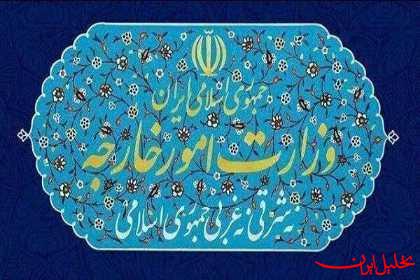 جمهوری اسلامی ایران
وزارت امور خارجه
نه شرقی نه غربی جمهوری اسلامی
تحلیل ایران